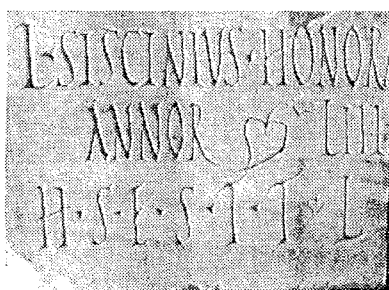 L·SISCINIVS·HONOR
ANNOR LIII
H·S·E·S·T·T·L